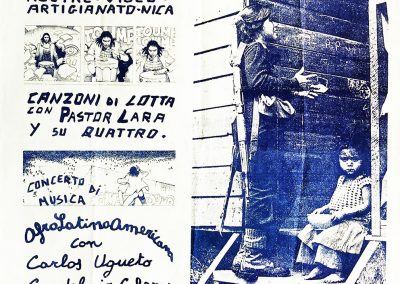 MOSTRE - VIDEO -
ARTIGIANATO-NICA
CANZONI DI LOTTA
CON PASTOR LARA
Y SU QUATTRO.
CONCERTO DI
MUSICA
AfroLatinoAmericana
con
Carlos Ugueto